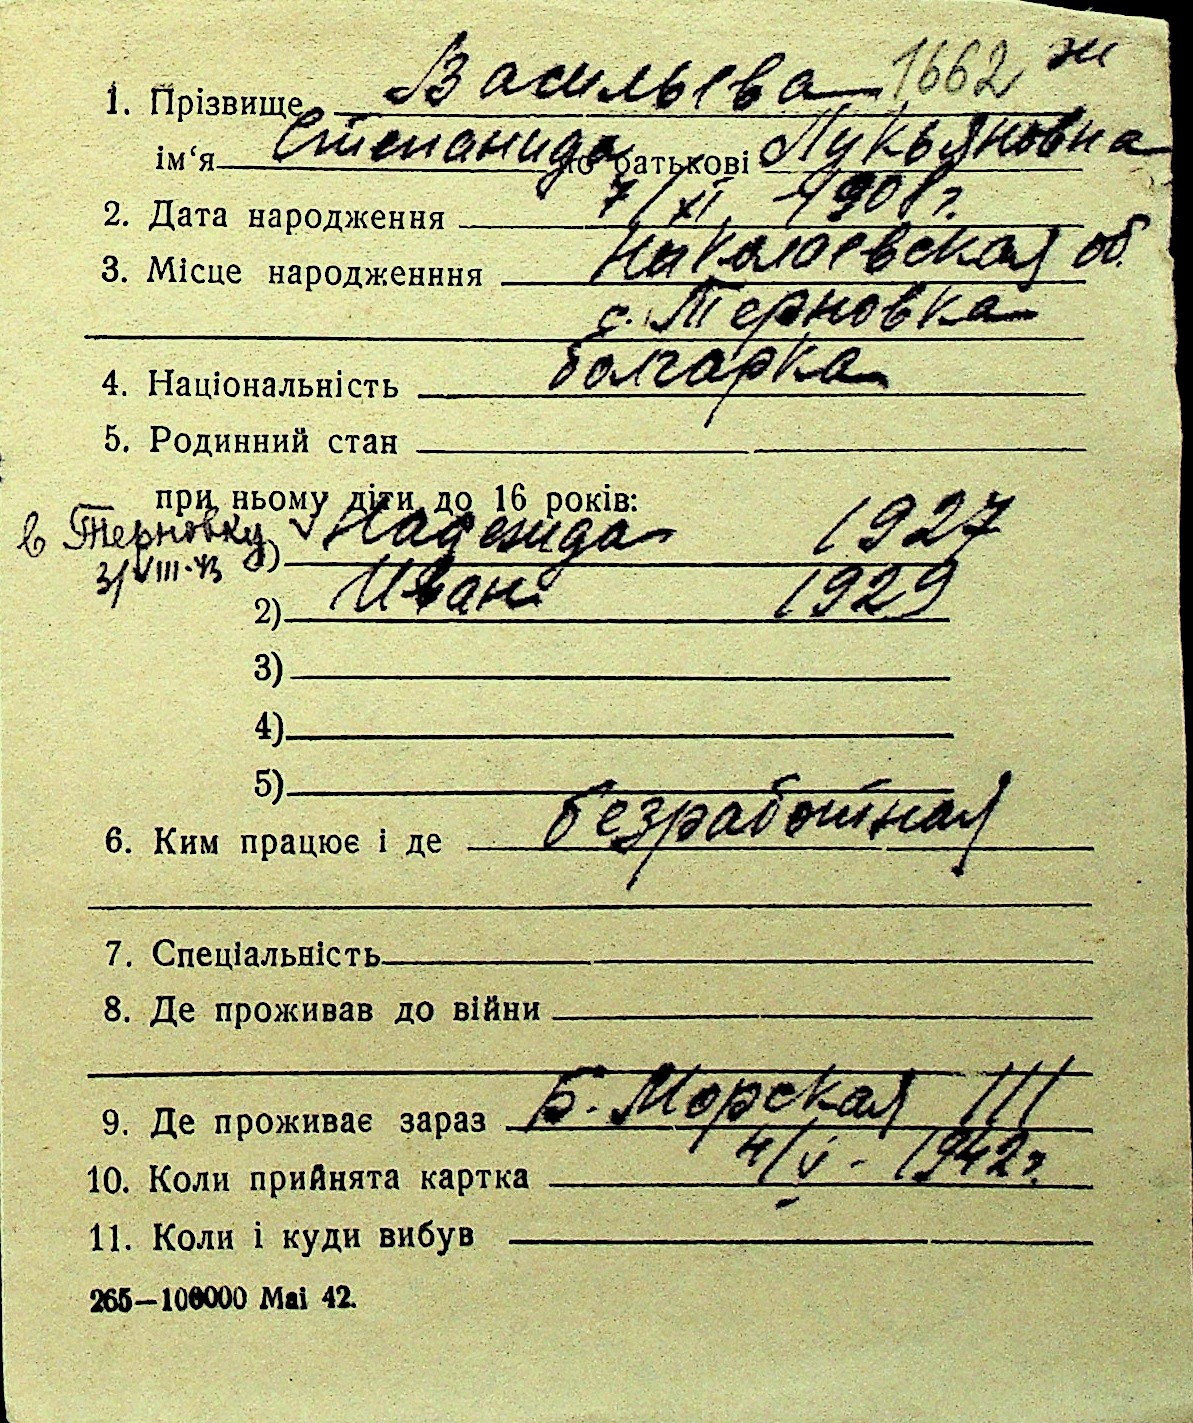 1662 ж
1. Прізвище Васильева
ім‘я Степанида по батькові Лукьяновна
2. Дата народження 7/XI 1901 г.
3. Місце народженння Николаевская об.
с. Терновка
4. Національність болгарка
5. Родинний стан
при ньому діти до 16 років:
в Терновку
31/VIII-43
1) Надежда 1927
2) Иван 1929
3)
4)
5)
6. Ким працює і де безработная
7. Спеціальність
8. Де проживав до війни
9. Де проживає зараз Б. Морская 111
10. Коли прийнята картка 4/V - 1942 г.
11. Коли і куди вибув
265—100000 Mai 42.